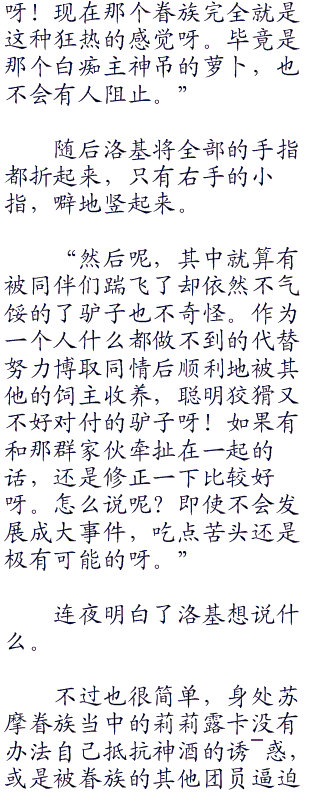 呀！现在那个眷族完全就是
这种狂热的感觉呀。毕竟是
那个白痴主神吊的萝卜，也
不会有人阻止。”
随后洛基将全部的手指
都折起来，只有右手的小
指，噼地竖起来。
“然后呢，其中就算有
被同伴们踹飞了却依然不气
馁的了驴子也不奇怪。作为
一个人什么都做不到的代替
努力博取同情后顺利地被其
他的饲主收养，聪明狡猾又
不好对付的驴子呀！如果有
和那群家伙牵扯在一起的
话，还是修正一下比较好
呀。怎么说呢？即使不会发
展成大事件，吃点苦头还是
极有可能的呀。”
连夜明白了洛基想说什
么。
不过也很简单，身处苏
摩眷族当中的莉莉露卡没有
办法自己抵抗神酒的诱¯惑，
或是被眷族的其他团员逼迫